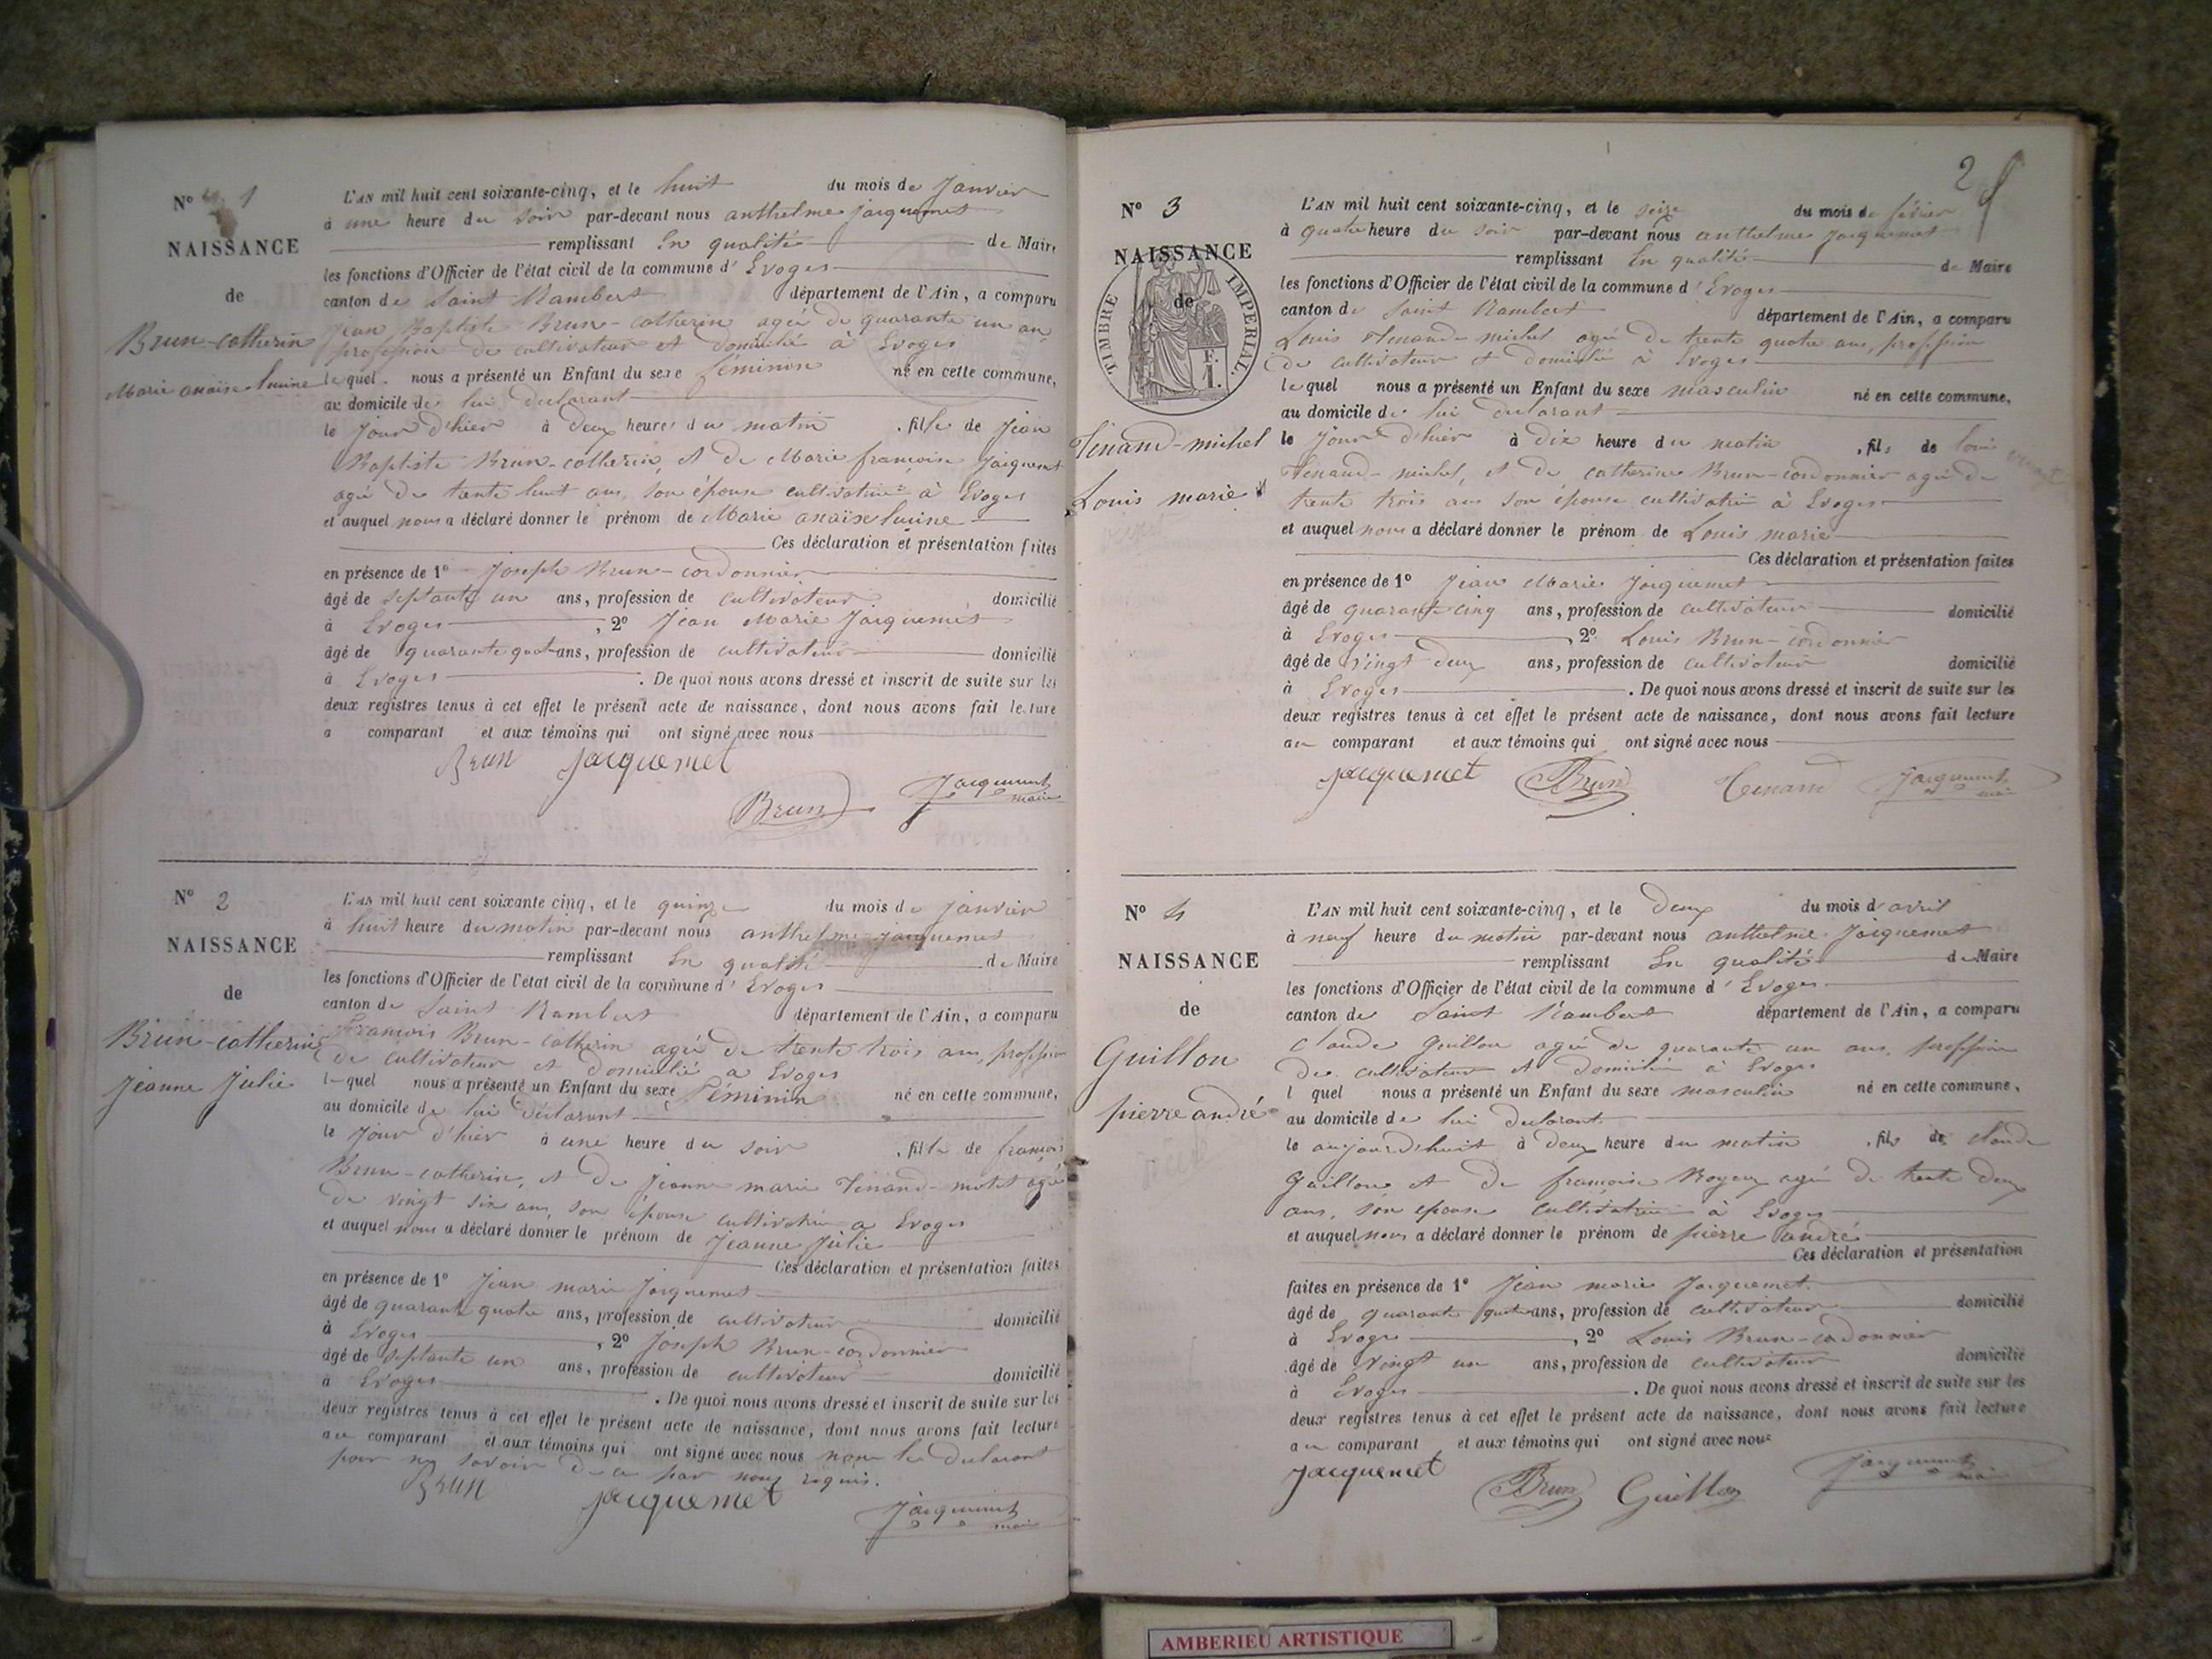 N° 1
NAISSANCE
de
Brun-catherin
Marie anaïse lucine
L'AN mil huit cent soixante-cinq, et le huit du mois de Janvier
à une heure du soir par-devant nous anthelme jacquemet
remplissant En qualité de Maire
les fonctions d'Officier de l'état civil de la commune d' Evoges
canton de Saint Rambert département de l'Ain, a comparu
Jean Baptiste Brun-catherin agée de quarante un an
profession de cultivateur et domicilié à Evoges
lequel nous a présenté un Enfant du sexe féminin né en cette commune,
au domicile de lui declarant
le jour d'hier à deux heures du matin , fille de Jean
Baptiste Brun-catherin, et de Marie françoise Jacquemet
agée de trente huit ans, son épouse cultivatrice à Evoges
et auquel nous a déclaré donner le prénom de Marie anaïse lucine
Ces déclaration et présentation faites
en présence de 1° Joseph Brun-cordonnier
âgé de septante un ans, profession de cultivateur domicilié
à Evoges , 2° Jean Marie Jacquemet
âgé de quarante quatre ans, profession de cultivateur domicilié
à Evoges . De quoi nous avons dressé et inscrit de suite sur les
deux registres tenus à cet effet le présent acte de naissance, dont nous avons fait lecture
a comparant et aux témoins qui ont signé avec nous
Brun jacquemet
Brun Jacquemet
maire
N° 2
NAISSANCE
de
Brun-catherin
Jeanne Julie
L'AN mil huit cent soixante cinq, et le quinze du mois de janvier
à huit heure du matin par-devant nous anthelme jacquemet
remplissant En qualité de Maire
les fonctions d'Officier de l'état civil de la commune d' Evoges
canton de Saint Rambert département de l'Ain, a comparu
François Brun-catherin agée de trente trois ans, profession
de cultivateur et domicilié a Evoges
lequel nous a présenté un Enfant du sexe Féminin né en cette commune,
au domicile de lui déclarant
le jour d'hier à une heure du soir , fille de françois
Brun-catherin, et de jeanne marie Tenand-motet agée
de vingt six ans, son épouse cultivatrice a Evoges
et auquel nous a déclaré donner le prénom de Jeanne Julie
Ces déclaration et présentation faites
en présence de 1° Jean marie Jacquemet
âgé de quarante quatre ans, profession de cultivateur domicilié
à Evoges , 2° Joseph Brun-cordonnier
âgé de septante un ans, profession de cultivateur domicilié
à Evoges . De quoi nous avons dressé et inscrit de suite sur les
deux registres tenus à cet effet le présent acte de naissance, dont nous avons fait lecture
au comparant et aux témoins qui ont signé avec nous non le declarant
pour ne savoir de ce par nous requis.
Brun jacquemet Jacquemet
maire
2
N° 3
NAISSANCE
de
TIMBRE IMPERIAL
F.
1.
Tenand-michel
Louis marie
L'AN mil huit cent soixante-cinq, et le seize du mois de février
à quatre heure du soir par-devant nous anthelme Jacquemet
remplissant En qualité de Maire
les fonctions d'Officier de l'état civil de la commune d' Evoges
canton de Saint Rambert département de l'Ain, a comparu
Louis Tenand-michel agée de trente quatre ans, profession
de cultivateur et domicilié à Evoges
lequel nous a présenté un Enfant du sexe masculin né en cette commune,
au domicile de lui declarant
le jour d'hier à dix heure du matin , fils de louis
Tenand-michel, et de catherine Brun-cordonnier agée de
trente trois ans son épouse cultivatrice à Evoges
et auquel nous a déclaré donner le prénom de Louis marie
Ces déclaration et présentation faites
en présence de 1° Jean Marie Jacquemet
âgé de quarante cinq ans, profession de cultivateur domicilié
à Evoges , 2° Louis Brun-cordonnier
âgé de vingt deux ans, profession de cultivateur domicilié
à Evoges . De quoi nous avons dressé et inscrit de suite sur les
deux registres tenus à cet effet le présent acte de naissance, dont nous avons fait lecture
au comparant et aux témoins qui ont signé avec nous
jacquemet Brun Tenand Jacquemet
maire
N° 4
NAISSANCE
de
Guillon
pierre andré
L'AN mil huit cent soixante-cinq, et le deux du mois d'avril
à neuf heure du matin par-devant nous anthelme Jacquemet
remplissant En qualité de Maire
les fonctions d'Officier de l'état civil de la commune d' Evoges
canton de Saint Rambert département de l'Ain, a comparu
claude Guillon agée de quarante un ans, profession
de cultivateur et domicilié à Evoges
l quel nous a présenté un Enfant du sexe masculin né en cette commune,
au domicile de lui declarant
le aujourd'huit à deux heure du matin , fils de claude
Guillon et de françoise Royer agée de trente deux
ans, son epouse cultivatrice à Evoges
et auquel nous a déclaré donner le prénom de pierre andré
Ces déclaration et présentation
faites en présence de 1° Jean marie Jacquemet
âgé de quarante quatre ans, profession de cultivateur domicilié
à Evoges , 2° Louis Brun-cordonnier
âgé de vingt un ans, profession de cultivateur domicilié
à Evoges . De quoi nous avons dressé et inscrit de suite sur les
deux registres tenus à cet effet le présent acte de naissance, dont nous avons fait lecture
au comparant et aux témoins qui ont signé avec nous
jacquemet Brun Guillon Jacquemet
maire
AMBERIEU ARTISTIQUE